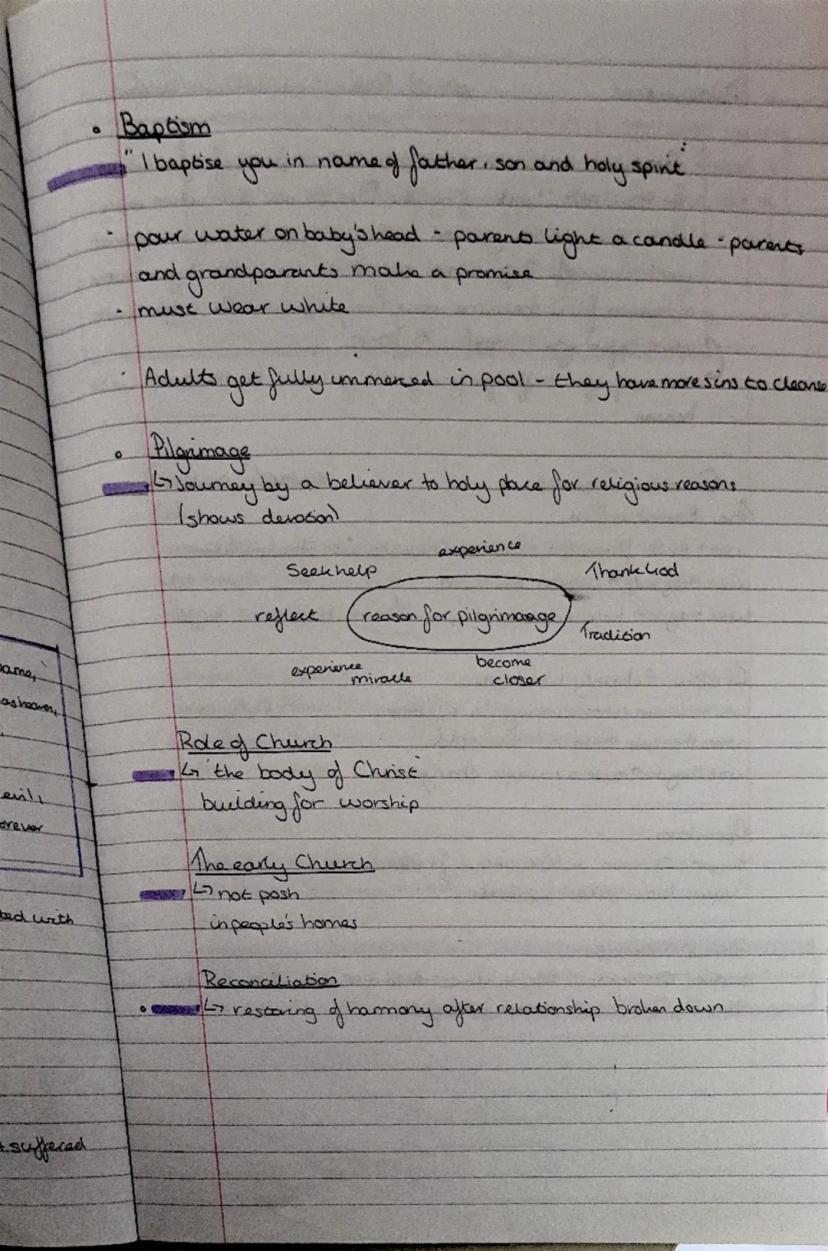 Baptism
"I baptise you in name of father, son and holy spirit"
- pour water on baby's head - parents light a candle - parents
and grandparents make a promise
- must wear white
- Adults get fully immersed in pool - they have more sins to cleanse
Pilgrimage
↳ Journey by a believer to holy place for religious reasons
(shows devotion)
experience
Seek help
Thank God
reflect
reason for pilgrimaage
Tradition
experience
miracle
become
closer
Role of Church
↳ 'the body of Christ'
building for worship
The early Church
↳ not posh
in people's homes
Reconciliation
↳ restoring of harmony after relationship broken down
ame,
as heaven,
evil,
orever
ted with
suffered